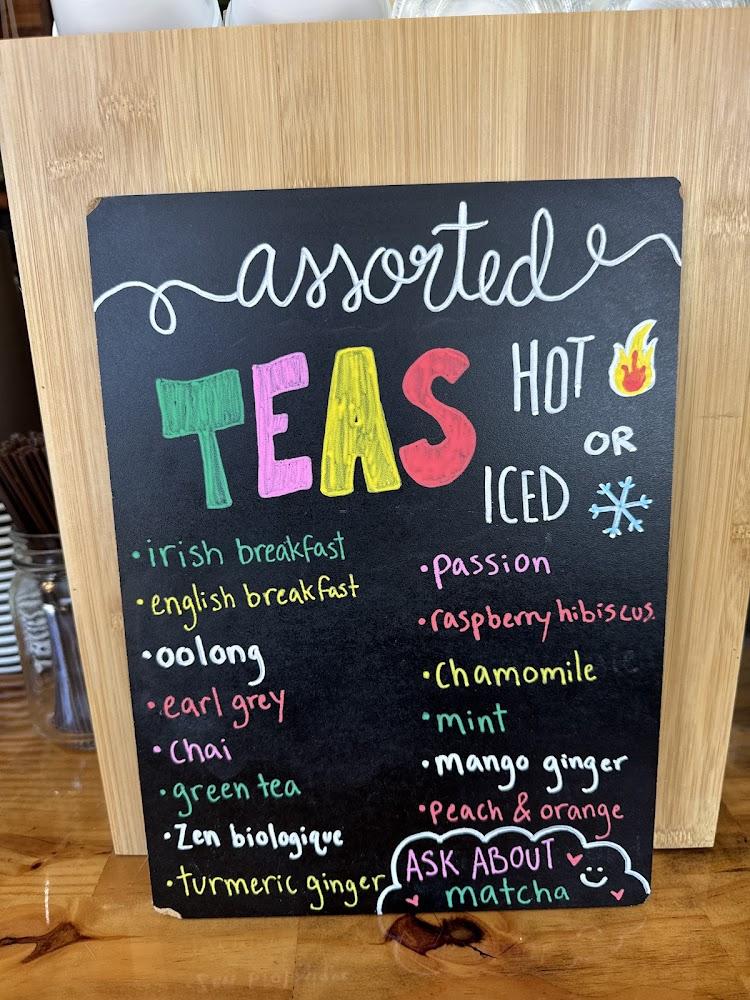 assorted
TEAS
HOT
OR
ICED
•irish breakfast
•english breakfast
•oolong
•earl grey
•Chai
•green tea
•Zen biologique
•turmeric ginger
•passion
•raspberry hibiscus
•Chamomile
•mint
•mango ginger
•peach & orange
ASK ABOUT
matcha